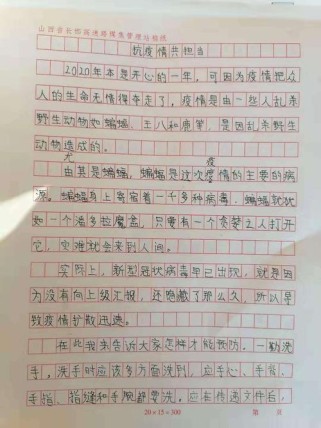 抗疫情共担当
2020年本是开心的一年,可因为疫情把众
人的生命无情得夺走了,疫情是由一些人乱杀
野生动物如蝙蝠、王八和
是因乱杀野生
动物造成的。
尤
疫
由其是蝙蝠,蝙蝠是这次疫情的主要的病
源。蝙蝠身上寄宿着一千多种病毒,蝙蝠就犹
如一个潘多拉魔盒,只要有一个贪婪之人打开
它,灾难就会来到人间。
实际上,新型冠状病毒早已出现,就是因
为没有向上级汇报,还隐藏了那么久,所以导
致疫情扩散迅速。
在此我来告诉大家怎样才能预防。一勤洗
手,洗手时应该多方面洗到,应手心、手背、
手指、指缝和手腕都要洗。应在传递文件后,
20×15=300
第 页